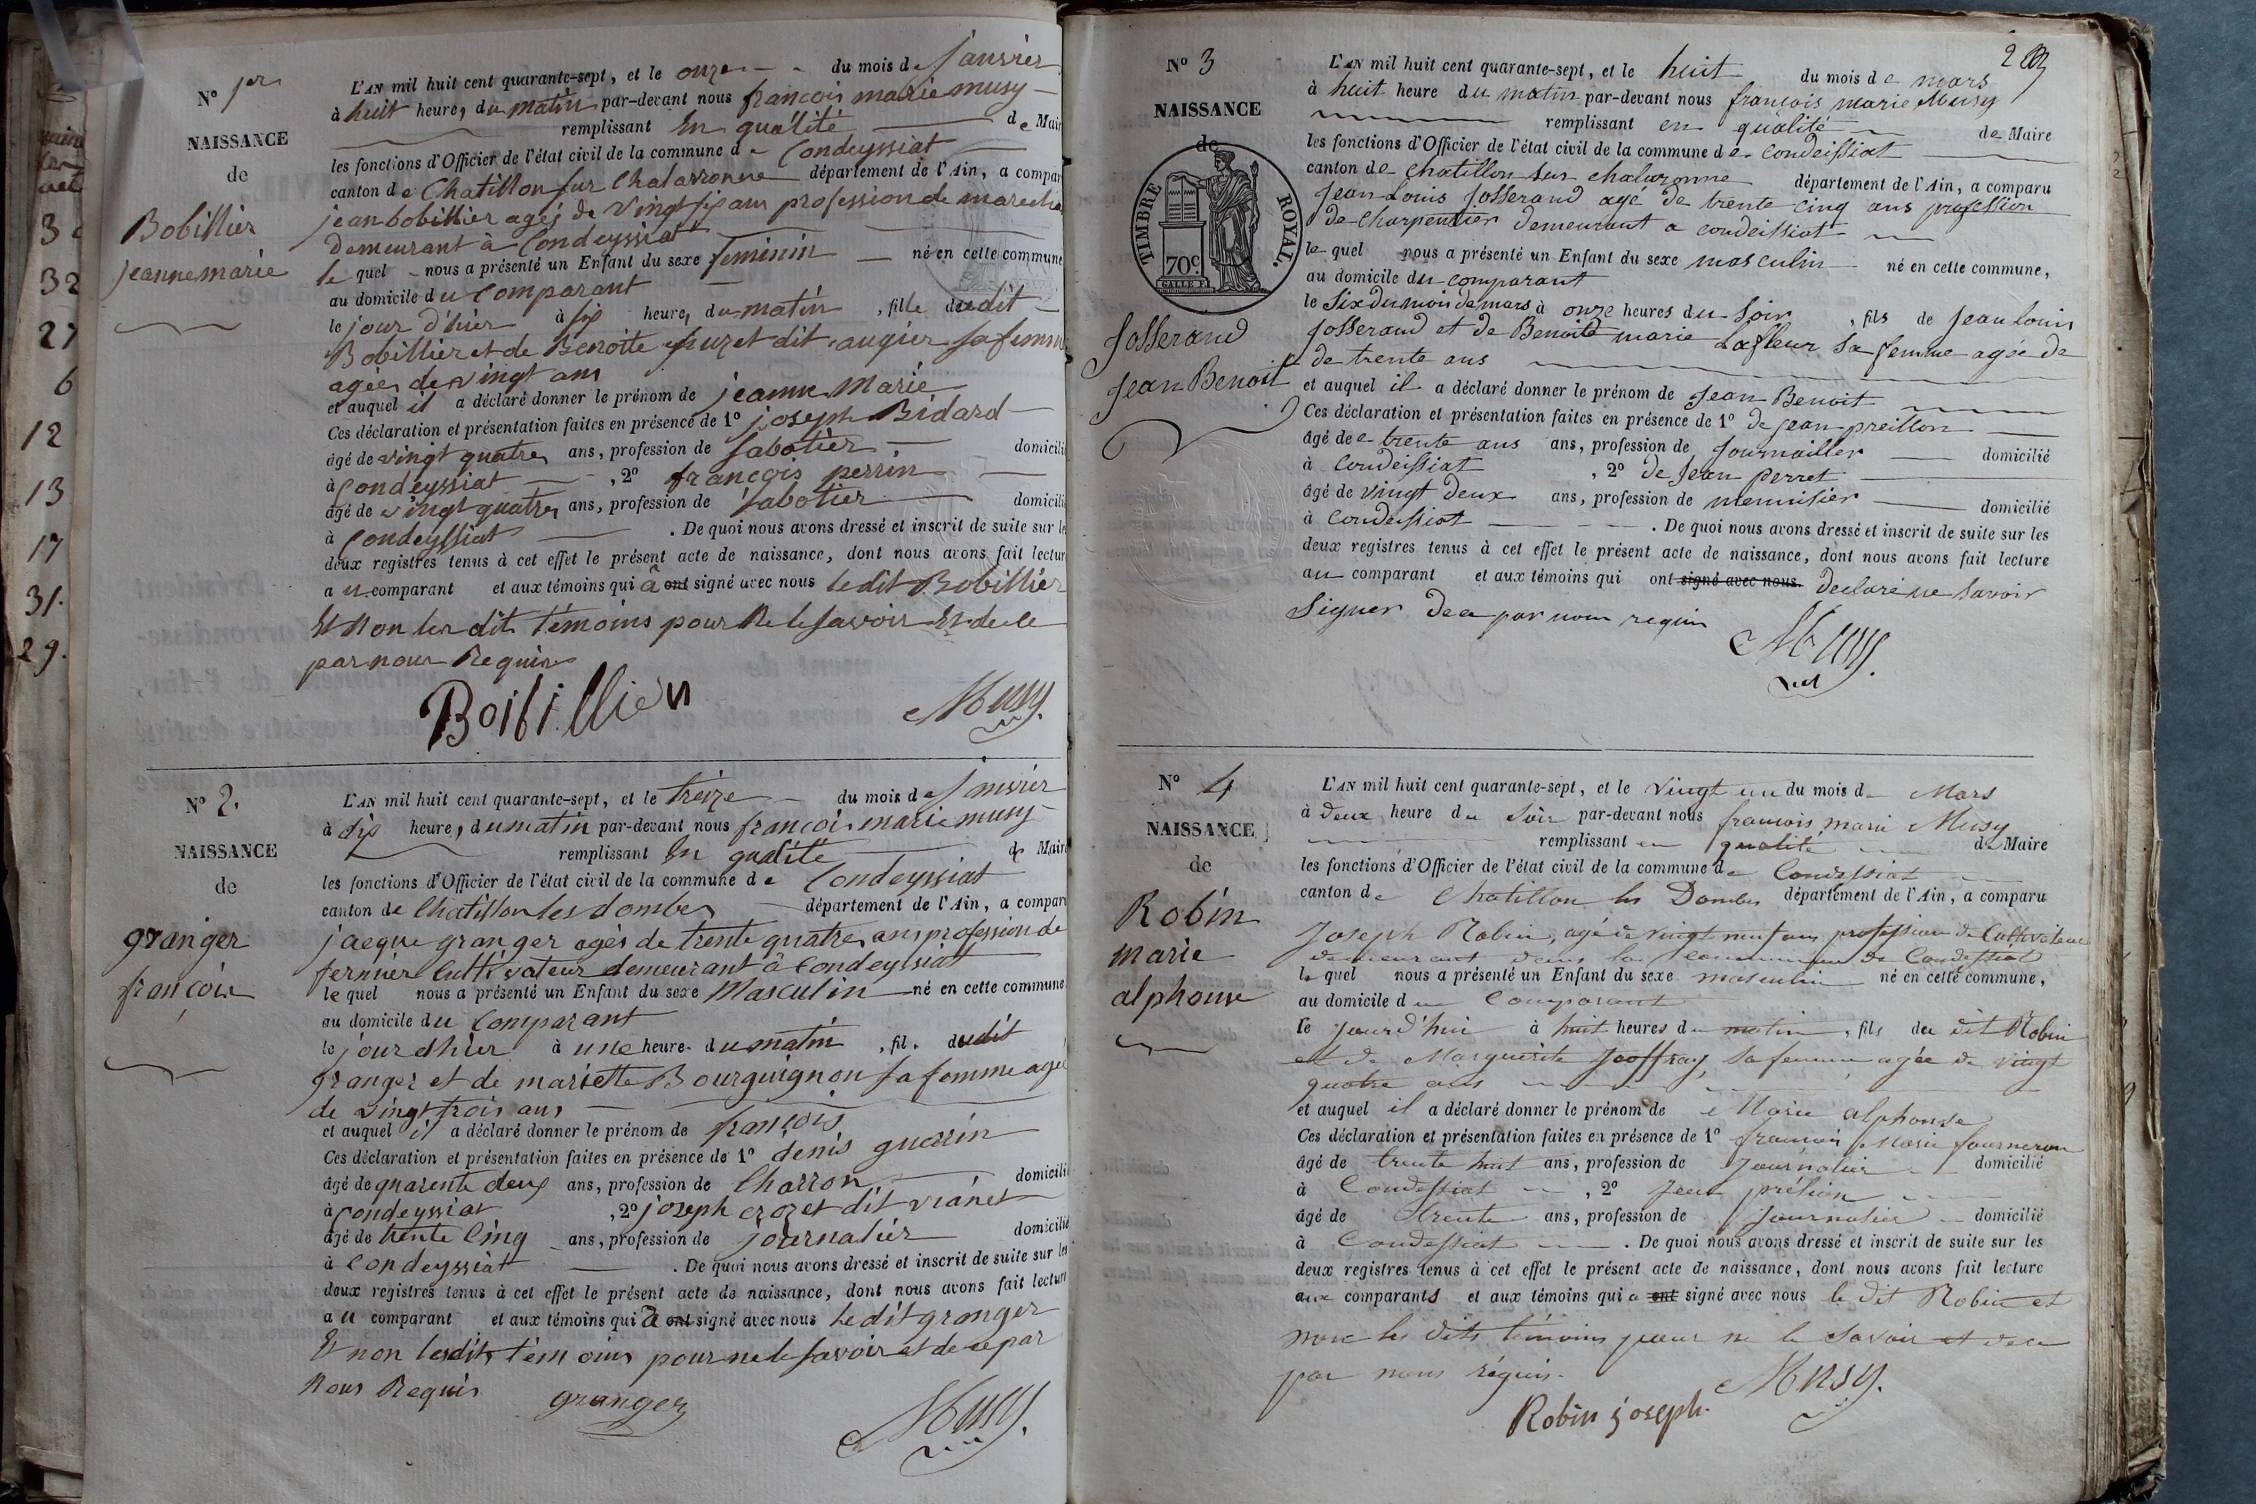 30
32
27
6
12
13
17
31.
29.
N° 1er
NAISSANCE
de
Bobillier
jeanne marie
L'AN mil huit cent quarante-sept, et le onze du mois de janvier
à huit heures du matin par-devant nous françois marie musy
remplissant En qualité de Mair
les fonctions d'Officier de l'état civil de la commune de Condeyssiat
canton de Chatillon sur Chalaronne département de l'Ain, a compar
jean bobillier agés de vingt six ans profession de marecha
demeurant à Condeyssiat
le quel nous a présenté un Enfant du sexe feminin né en cette commune
au domicile du Comparant
le jour d'hier à six heures du matin, fille dudit
Bobillier et de Benoite cruzet dit augier sa femme
agées de vingt ans
et auquel il a déclaré donner le prénom de jeanne marie
Ces déclaration et présentation faites en présence de 1° joseph Bidard
âgé de vingt quatres ans, profession de sabotier domicili
à Condeyssiat, 2° françois perrin
âgé de vingt quatres ans, profession de sabotier domicili
à Condeyssiat. De quoi nous avons dressé et inscrit de suite sur le
deux registres tenus à cet effet le présent acte de naissance, dont nous avons fait lectur
au comparant et aux témoins qui â ont signé avec nous ledit Bobillier
Et Non les dits témoins pour Ne le savoir Et de ce
par nous Requis
Boibillier Musy.
N° 2.
NAISSANCE
de
granger
françois
L'AN mil huit cent quarante-sept, et le treize du mois de janvier
à dix heures du matin par-devant nous françois marie musy
remplissant En qualité de Mair
les fonctions d'Officier de l'état civil de la commune de Condeyssiat
canton de Chatillon les dombes département de l'Ain, a compar
jacque granger agés de trente quatres ans profession de
fermier Cultivateur demeurant à Condeyssiat
le quel nous a présenté un Enfant du sexe Masculin né en cette commune
au domicile du Comparant
le jour d'hier à une heure du matin, fil. dudit
granger et de mariette Bourguignon sa femme agée
de vingt trois ans
et auquel il a déclaré donner le prénom de françois
Ces déclaration et présentation faites en présence de 1° denis guerrin
âgé de quarente deux ans, profession de Charron domicili
à Condeyssiat, 2° joseph crozet dit vianet
âgé de trente Cinq ans, profession de journalier domicilié
à Condeyssiat. De quoi nous avons dressé et inscrit de suite sur les
deux registres tenus à cet effet le présent acte de naissance, dont nous avons fait lecture
au comparant et aux témoins qui â ont signé avec nous ledit granger
Et non lesdits témoins pour ne le savoir et de ce par
Nous Requis
granger Musy.
N° 3
NAISSANCE
de
TIMBRE ROYAL.
70c
Josserand
Jean Benoit
2
L'AN mil huit cent quarante-sept, et le huit du mois de mars
à huit heure du matin par-devant nous françois marie Musy
remplissant en qualité de Maire
les fonctions d'Officier de l'état civil de la commune de Condeissiat
canton de chatillon sur chalaronne département de l'Ain, a comparu
Jean Louis Josserand agé de trente cinq ans profession
de charpentier demeurant a condeissiat
le quel nous a présenté un Enfant du sexe masculin né en cette commune,
au domicile du comparant
le Six du mois de mars à onze heures du Soir, fils de Jean louis
Josserand et de Benoite marie Lafleur Sa femme agée de
de trente ans
et auquel il a déclaré donner le prénom de Jean Benoit
Ces déclaration et présentation faites en présence de 1° de jean preillon
âgé de trente ans ans, profession de Journallier domicilié
à condeissiat, 2° de Jean perret
âgé de vingt deux ans, profession de mennisier domicilié
à condeissiat. De quoi nous avons dressé et inscrit de suite sur les
deux registres tenus à cet effet le présent acte de naissance, dont nous avons fait lecture
au comparant et aux témoins qui ont signé avec nous declaré ne savoir
Signer de ce par nous requis
Musy.
N° 4
NAISSANCE
de
Robin
marie
alphonse
L'AN mil huit cent quarante-sept, et le vingt un du mois de Mars
à Deux heure du soir par-devant nous francois marie Musy
remplissant en qualité de Maire
les fonctions d'Officier de l'état civil de la commune de Condessiat
canton de Chatillon les Dombes département de l'Ain, a comparu
Joseph Robin, agé de vingt neuf ans profession de Cultivateur
demeurant dans la commune de Condessiat
le quel nous a présenté un Enfant du sexe masculin né en cette commune,
au domicile du Comparant
le jourd'hui à huit heures du matin, fils du dit Robin
et de Marguerite Jeoffray, sa femme, agée de vingt
quatre ans
et auquel il a déclaré donner le prénom de Marie alphonse
Ces déclaration et présentation faites en présence de 1° francois Marie fourneron
âgé de trente huit ans, profession de Journalier domicilié
à Condessiat, 2° Jean prélion
âgé de trente ans, profession de journalier domicilié
à Condessiat. De quoi nous avons dressé et inscrit de suite sur les
deux registres tenus à cet effet le présent acte de naissance, dont nous avons fait lecture
aux comparants et aux témoins qui a ont signé avec nous le dit Robin et
non les dits témoins pour ne le savoir et de ce
par nous réquis.
Musy.
Robin joseph.